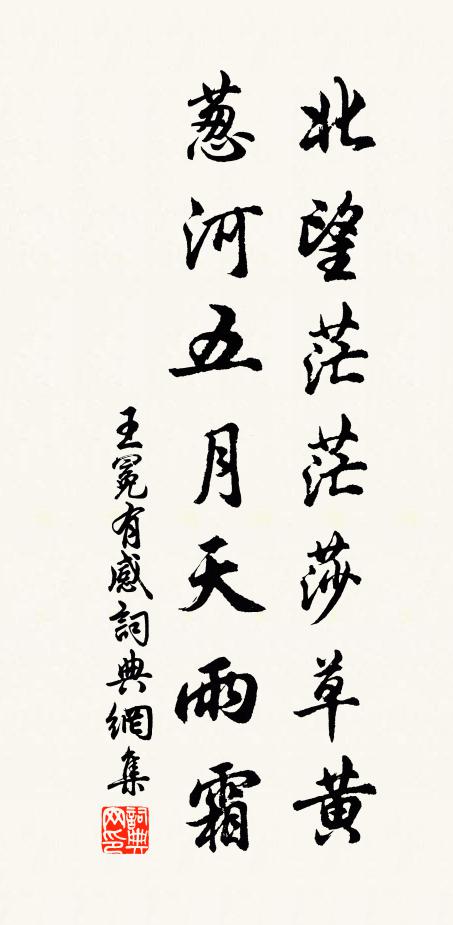 北望茫茫莎草黃
蔥河五月天雨霜
王冕有感詞典網集
詞典網印